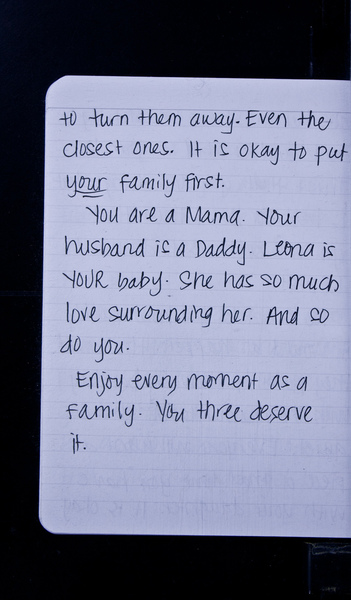 to turn them away. Even the
closest ones. It is okay to put
your family first.
You are a Mama. Your
husband is a Daddy. Leona is
YOUR baby. She has so much
love surrounding her. And so
do you.
Enjoy every moment as a
family. You three deserve
it.